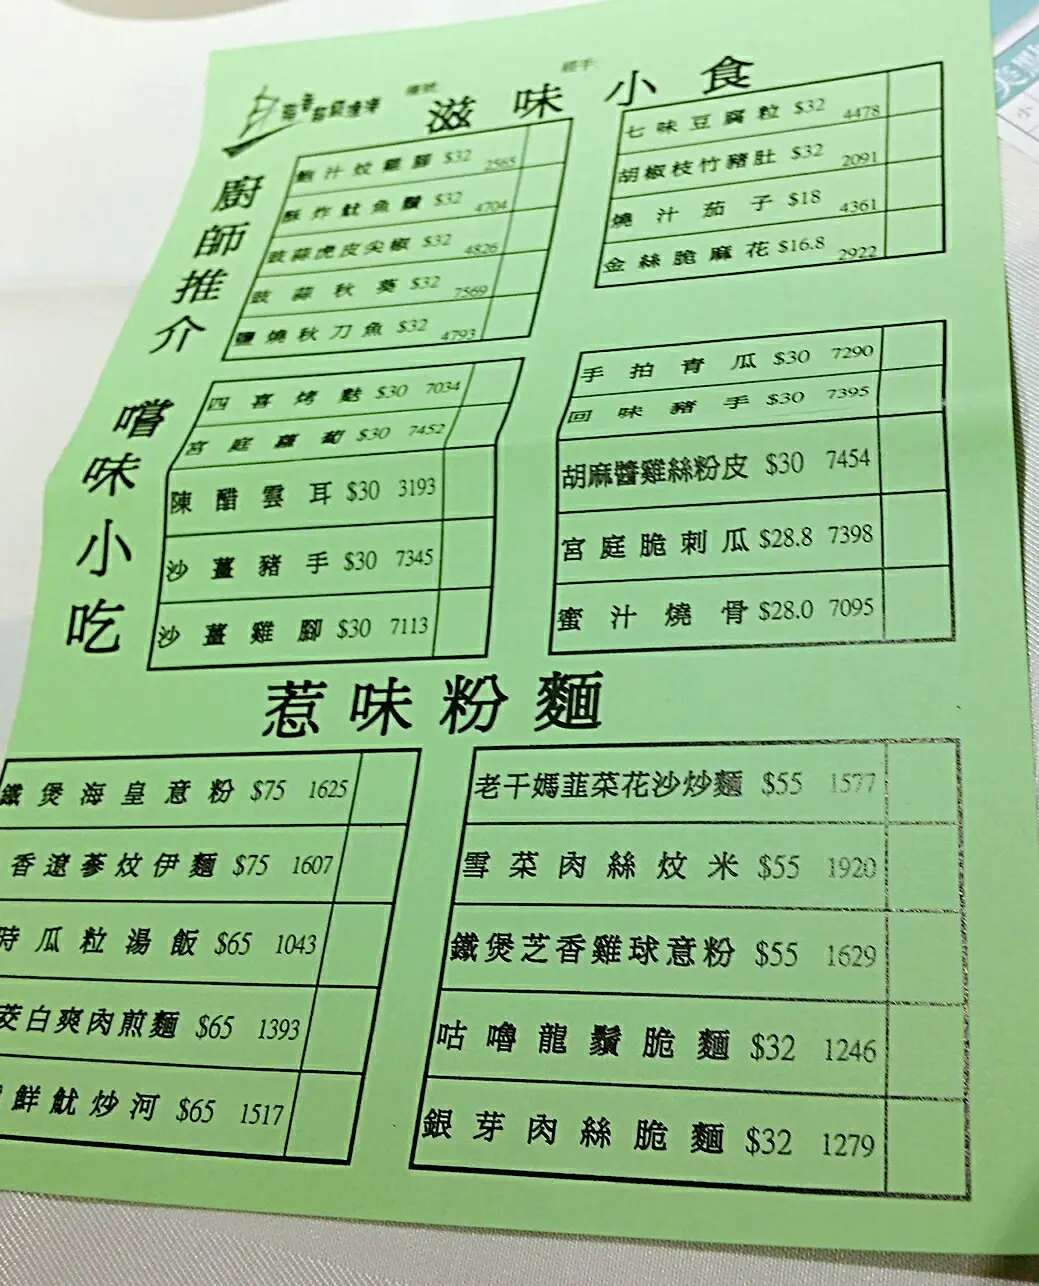 滋味小食
廚師推介
鮑汁炆雞腳 $32 2565
酥炸魷魚鬚 $32 4704
豉蒜虎皮尖椒 $32 4826
豉蒜秋葵 $32 7569
鹽燒秋刀魚 $32 4793
七味豆腐粒 $32 4478
胡椒枝竹豬肚 $32 2091
燒汁茄子 $18 4361
金絲脆麻花 $16.8 2922
嚐味小吃
四喜烤麩 $30 7034
宮庭蘿蔔 $30 7452
陳醋雲耳 $30 3193
沙薑豬手 $30 7345
沙薑雞腳 $30 7113
手拍青瓜 $30 7290
回味豬手 $30 7395
胡麻醬雞絲粉皮 $30 7454
宮庭脆刺瓜 $28.8 7398
蜜汁燒骨 $28.0 7095
惹味粉麵
鐵煲海皇意粉 $75 1625
香遼蔘炆伊麵 $75 1607
時瓜粒湯飯 $65 1043
茭白爽肉煎麵 $65 1393
鮮魷炒河 $65 1517
老干媽韮菜花沙炒麵 $55 1577
雪菜肉絲炆米 $55 1920
鐵煲芝香雞球意粉 $55 1629
咕嚕龍鬚脆麵 $32 1246
銀芽肉絲脆麵 $32 1279